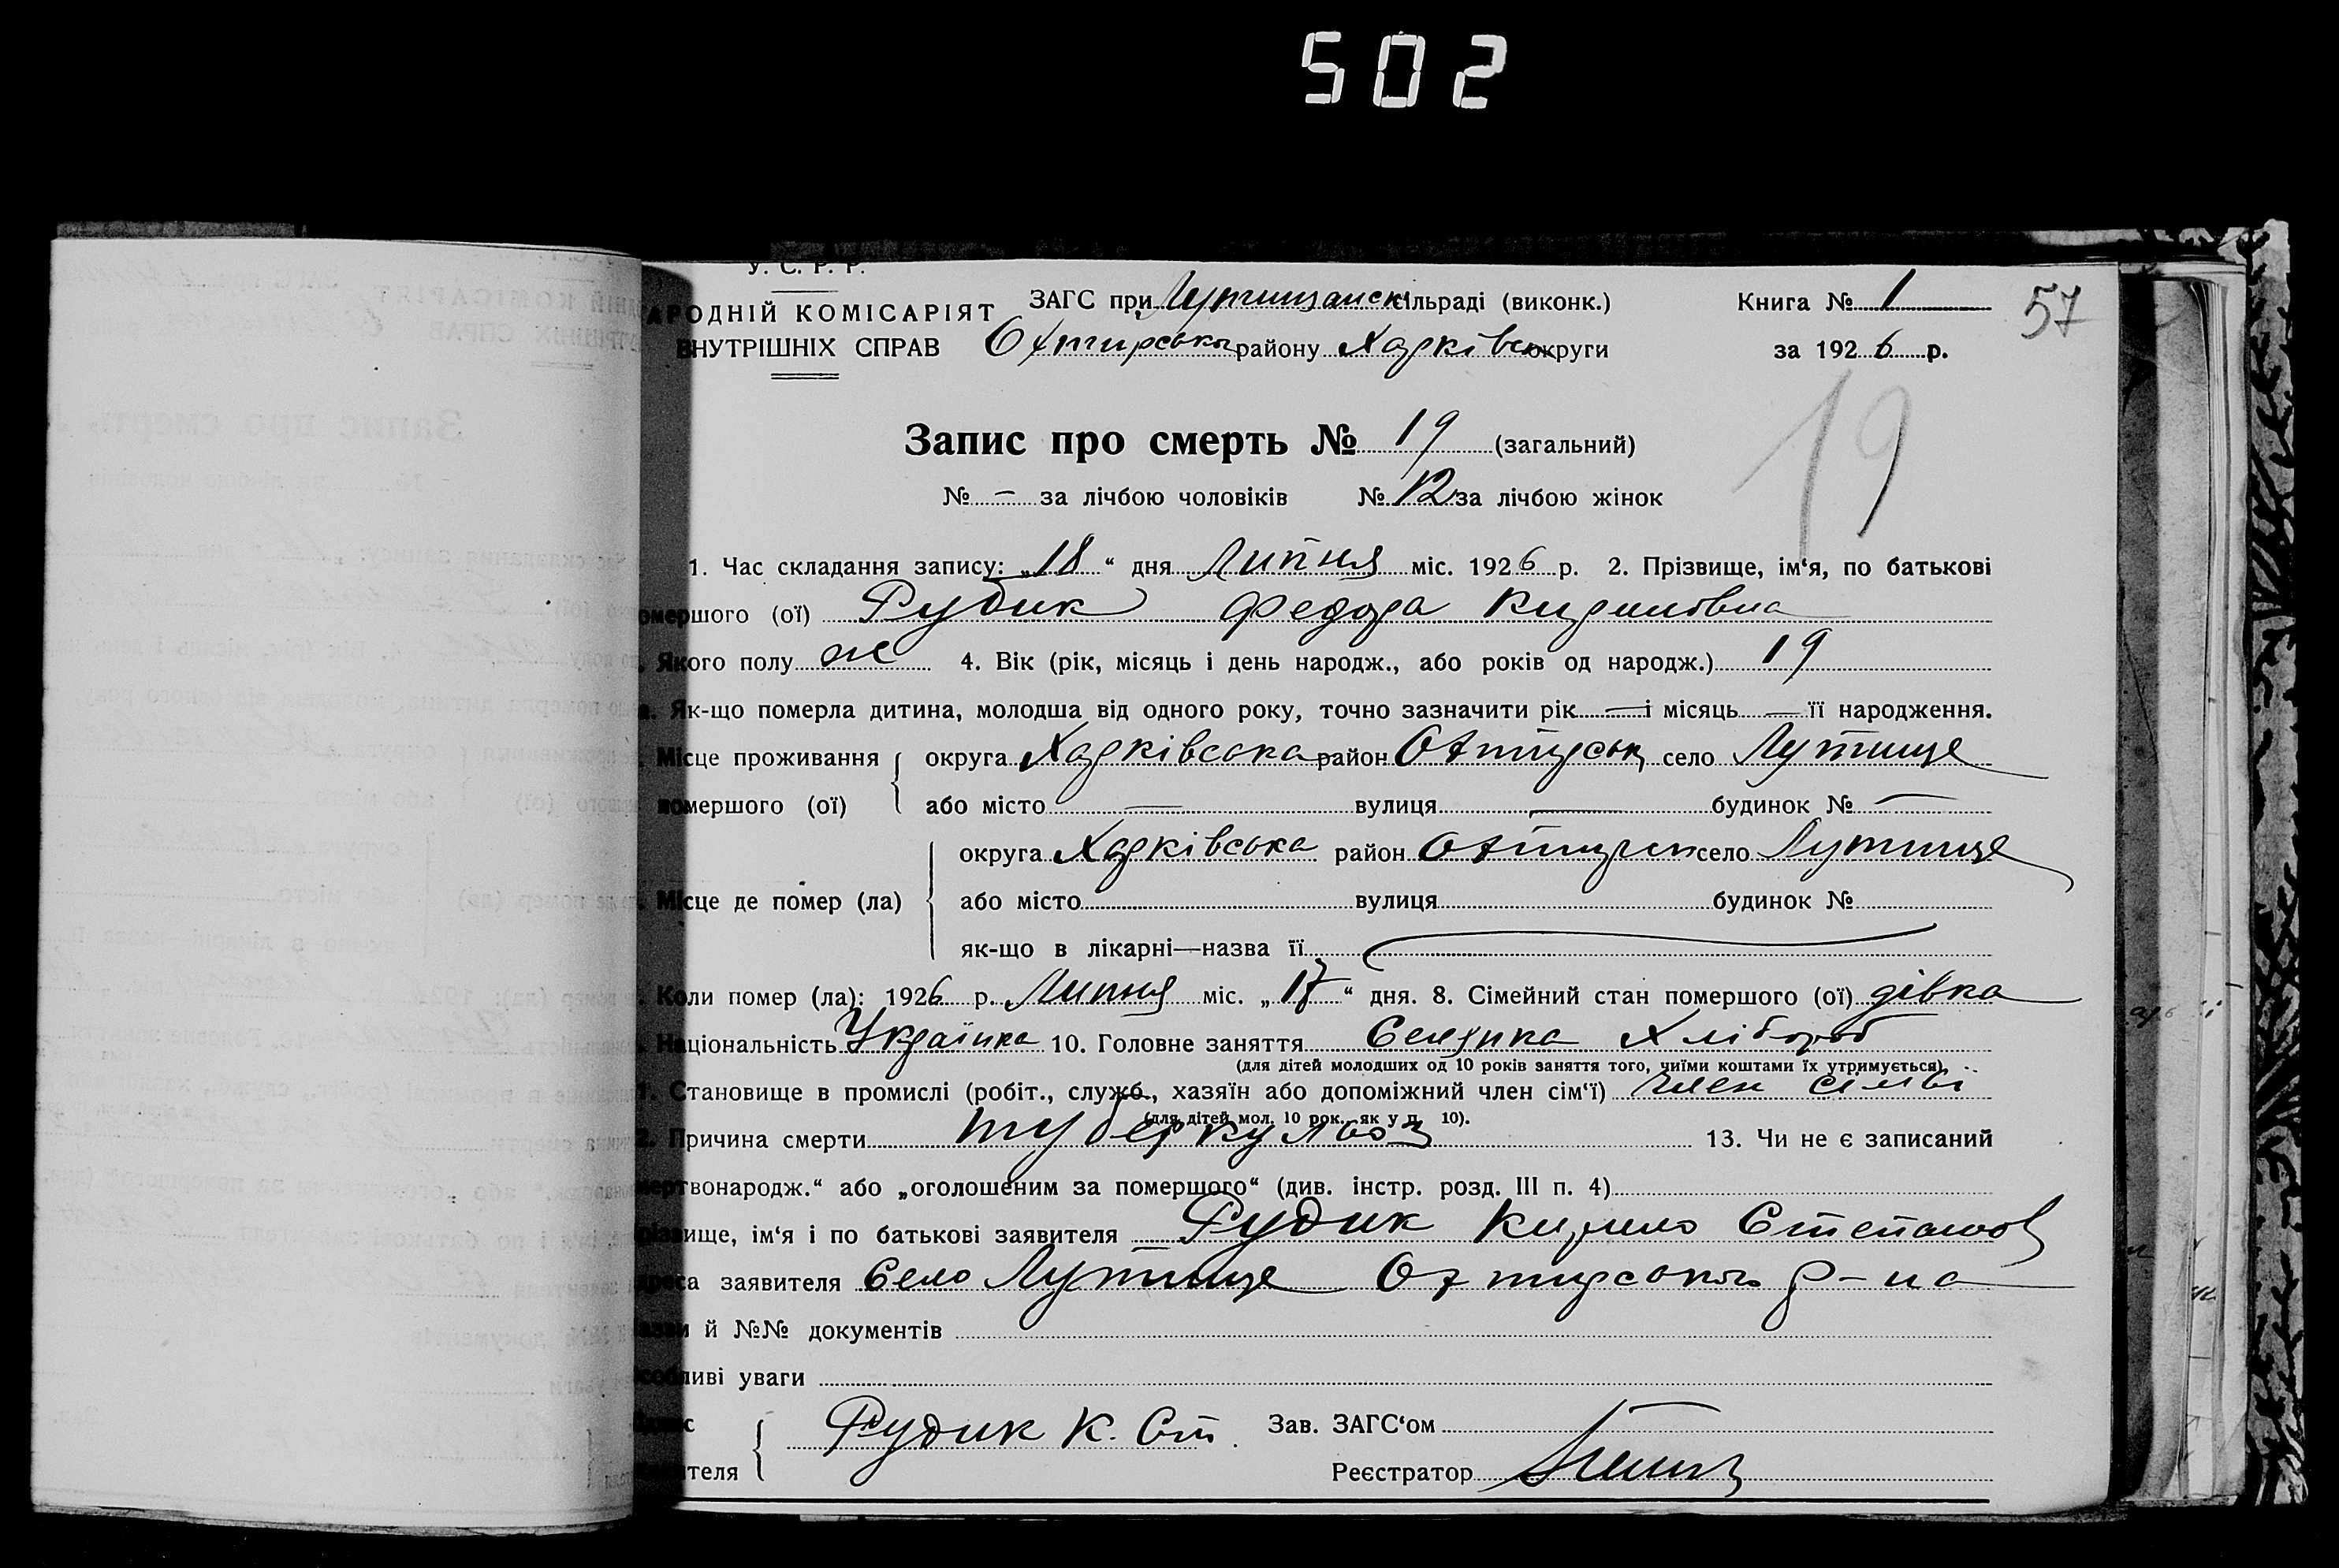 502
У. С. Р. Р.
АРОДНІЙ КОМІСАРІЯТ ЗАГС при Лутищанск сільраді (виконк.) Книга № 1 57
ВНУТРІШНІХ СПРАВ Охтирськ району Харківс округи за 1926 р.
19
Запис про смерть № 19 (загальний)
№ – за лічбою чоловіків № 12 за лічбою жінок
1. Час складання запису: „18“ дня Липня міс. 1926 р. 2. Прізвище, ім‘я, по батькові
омершого (ої) Рудик Федора Кириловна
Якого полу ж 4. Вік (рік, місяць і день народж., або років од народж.) 19
а. Як-що померла дитина, молодша від одного року, точно зазначити рік — і місяць — її народження.
Місце проживання округа Харківська район Охтирськ село Лутище
помершого (ої) або місто — вулиця — будинок № —
округа Харківська район Охтирськ село Лутище
Місце де помер (ла) або місто вулиця будинок №
як-що в лікарні—назва її
Коли помер (ла): 1926 р. Липня міс. „17“ дня. 8. Сімейний стан помершого (ої) дівка
Національність Українка 10. Головне заняття Селянка Хлібороб
(для дітей молодших од 10 років заняття того, чиїми коштами їх утримується).
1. Становище в промислі (робіт., служб., хазяїн або допоміжний член сім‘ї) член сімьі
(для дітей мол. 10 рок., як у п. 10).
2. Причина смерти туберкульоз 13. Чи не є записаний
мертвонародж.“ або „оголошеним за помершого“ (див. інстр. розд. III п. 4)
різвище, ім‘я і по батькові заявителя Рудик Кирило Степанов
дреса заявителя Село Лутище Охтирського р-на
азви й №№ документів
собливі уваги
Рудик К. Ст. Зав. ЗАГС‘ом
ителя Реєстратор